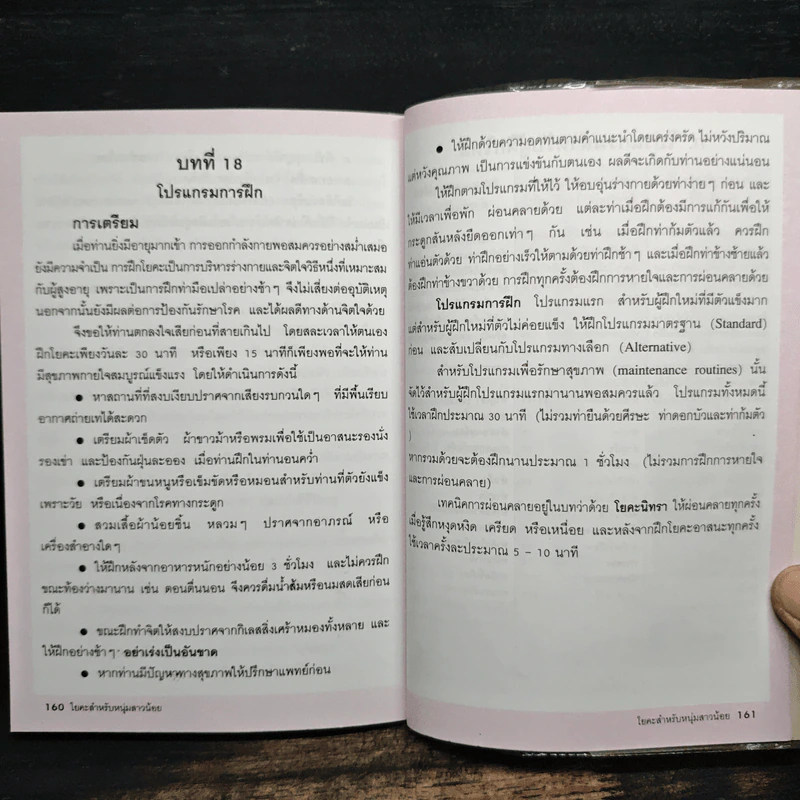 บทที่ 18
โปรแกรมการฝึก
การเตรียม
เมื่อท่านยิ่งมีอายุมากเข้า การออกกำลังกายพอสมควรอย่างสม่ำเสมอ
ยังมีความจำเป็น การฝึกโยคะเป็นการบริหารร่างกายและจิตใจวิธีหนึ่งที่เหมาะสม
กับผู้สูงอายุ เพราะเป็นการฝึกท่ามือเปล่าอย่างช้าๆ จึงไม่เสี่ยงต่ออุบัติเหตุ
นอกจากนั้นยังมีผลต่อการป้องกันรักษาโรค และได้ผลดีทางด้านจิตใจด้วย
จึงขอให้ท่านตกลงใจเสียก่อนที่สายเกินไป โดยสละเวลาให้ตนเอง
ฝึกโยคะเพียงวันละ 30 นาที หรือเพียง 15 นาทีก็เพียงพอที่จะให้ท่าน
มีสุขภาพกายใจสมบูรณ์แข็งแรง โดยให้ดำเนินการดังนี้
● หาสถานที่ที่สงบเงียบปราศจากเสียงรบกวนใดๆ ที่มีพื้นเรียบ
อากาศถ่ายเทได้สะดวก
● เตรียมผ้าเช็ดตัว ผ้าขาวม้าหรือพรมเพื่อใช้เป็นอาสนะรองนั่ง
รองเข่า และป้องกันฝุ่นละออง เมื่อท่านฝึกในท่านอนคว่ำ
● เตรียมผ้าขนหนูหรือเข็มขัดหรือหมอนสำหรับท่านที่ตัวยังแข็ง
เพราะวัย หรือเนื่องจากโรคทางกระดูก
● สวมเสื้อผ้าน้อยชิ้น หลวมๆ ปราศจากอาภรณ์ หรือ
เครื่องสำอางใดๆ
● ให้ฝึกหลังจากอาหารหนักอย่างน้อย 3 ชั่วโมง และไม่ควรฝึก
ขณะท้องว่างมานาน เช่น ตอนตื่นนอน จึงควรดื่มน้ำส้มหรือนมสดเสียก่อน
ก็ได้
● ขณะฝึกทำจิตให้สงบปราศจากกิเลสสิ่งเศร้าหมองทั้งหลาย และ
ให้ฝึกอย่างช้าๆ อย่าเร่งเป็นอันขาด
● หากท่านมีปัญหาทางสุขภาพให้ปรึกษาแพทย์ก่อน
160 โยคะสำหรับหนุ่มสาวน้อย
● ให้ฝึกด้วยความอดทนตามคำแนะนำโดยเคร่งครัด ไม่หวังปริมาณ
แต่หวังคุณภาพ เป็นการแข่งขันกับตนเอง ผลดีจะเกิดกับท่านอย่างแน่นอน
ให้ฝึกตามโปรแกรมที่ให้ไว้ ให้อบอุ่นร่างกายด้วยท่าง่ายๆ ก่อน และ
ให้มีเวลาเพื่อพัก ผ่อนคลายด้วย แต่ละท่าเมื่อฝึกต้องมีการแก้กันเพื่อให้
กระดูกสันหลังยืดออกเท่าๆ กัน เช่น เมื่อฝึกท่าก้มตัวแล้ว ควรฝึก
ท่าแอ่นตัวด้วย ทำฝึกอย่างเร็วให้ตามด้วยท่าฝึกช้าๆ และเมื่อฝึกท่าข้างซ้ายแล้ว
ต้องฝึกท่าข้างขวาด้วย การฝึกทุกครั้งต้องฝึกการหายใจและการผ่อนคลายด้วย
โปรแกรมการฝึก โปรแกรมแรก สำหรับผู้ฝึกใหม่ที่มีตัวแข็งมาก
แต่สำหรับผู้ฝึกใหม่ที่ตัวไม่ค่อยแข็ง ให้ฝึกโปรแกรมมาตรฐาน (Standard)
ก่อน และสับเปลี่ยนกับโปรแกรมทางเลือก (Alternative)
สำหรับโปรแกรมเพื่อรักษาสุขภาพ (maintenance routines) นั้น
จัดไว้สำหรับผู้ฝึกโปรแกรมแรกมานานพอสมควรแล้ว โปรแกรมทั้งหมดนี้
ใช้เวลาฝึกประมาณ 30 นาที (ไม่รวมท่ายืนด้วยศีรษะ ท่าดอกบัวและท่าก้มตัว
)
หากรวมด้วยจะต้องฝึกนานประมาณ 1 ชั่วโมง (ไม่รวมการฝึกการหายใจ
และการผ่อนคลาย)
เทคนิคการผ่อนคลายอยู่ในบทว่าด้วย โยคะนิทรา ให้ผ่อนคลายทุกครั้ง
เมื่อรู้สึกหงุดหงิด เครียด หรือเหนื่อย และหลังจากฝึกโยคะอาสนะทุกครั้ง
ใช้เวลาครั้งละประมาณ 5 – 10 นาที
โยคะสำหรับหนุ่มสาวน้อย 161